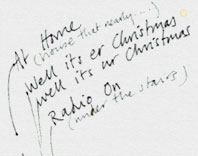 At Home
(house that nearly.....)
Well its er Christmas
well its ur Christmas
Radio On
(under the stairs)